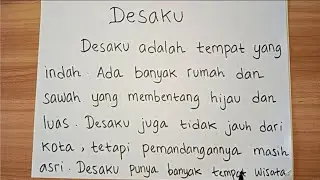 Desaku
Desaku adalah tempat yang
indah. Ada banyak rumah dan
sawah yang membentang hijau dan
luas. Desaku juga tidak jauh dari
kota, tetapi pemandangannya masih
asri. Desaku punya banyak tempat wisata